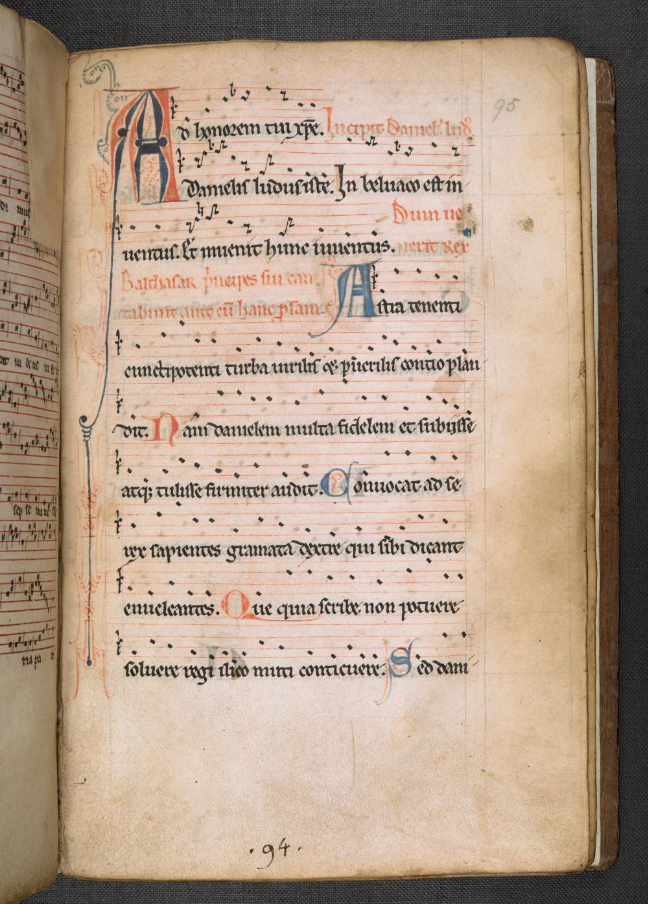 95
Ad honorem tui xp̄e. Incipit Danielis lud
Danielis ludus iste. In beluaco est in
Dum ue
uentus. Et inuenit hunc iuuentus. nerit Rex
Balthasar p̄ncipes sui can
tabunt ante eū hanc p̄sam. Astra tenenti
cunctipotenti turba uirilis et puerilis contio plau
dit. Nam danielem multa fidelem et subisse
atq; tulisse firmiter audit. Conuocat ad se
rex sapientes gramata dextre qui sibi dicant
enucleantes. Que quia scribe non potuere
soluere regi ilico muti conticuere. Sed dani
.94.